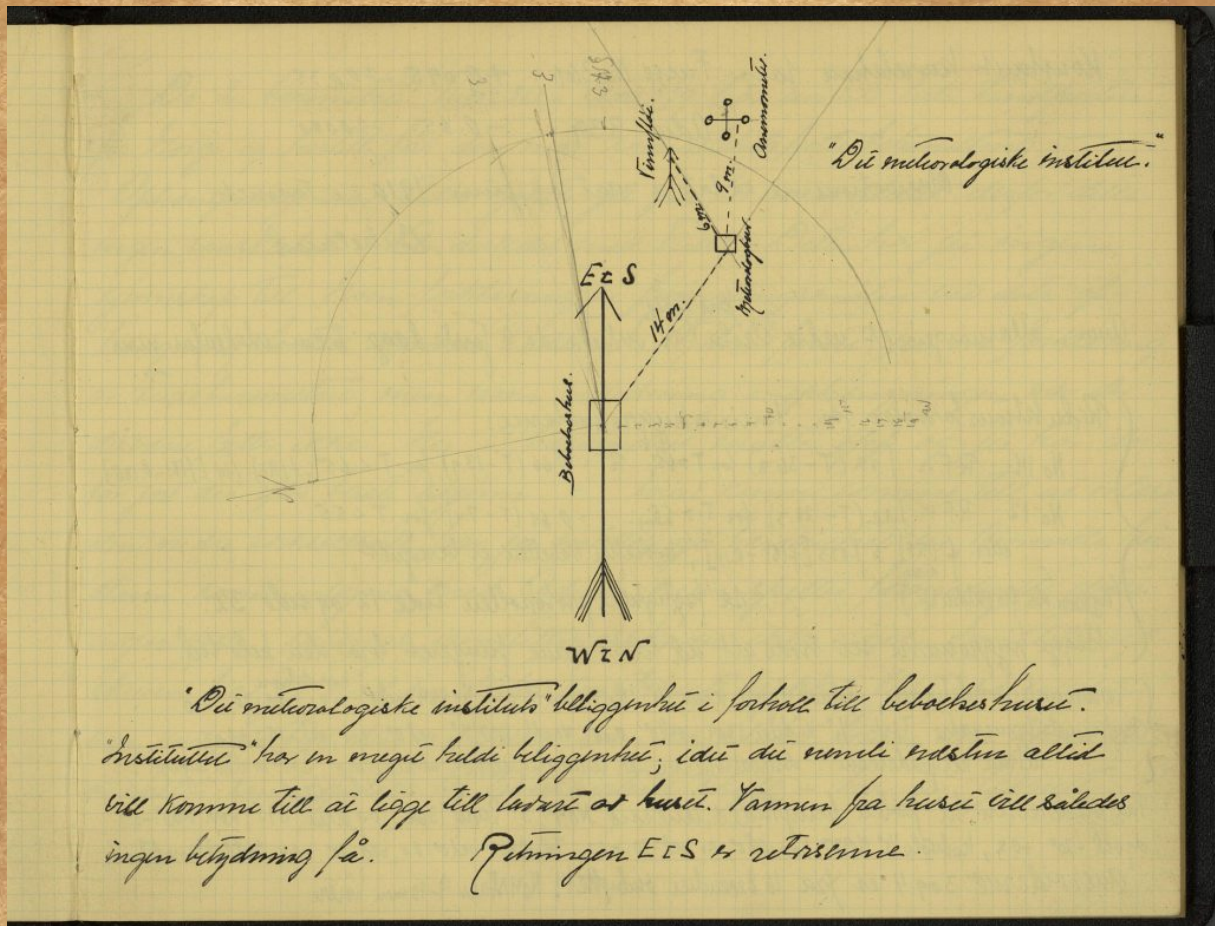 "Det meteorologiske institut."
Vimpfløi.
Anemometer.
9 m.
6 m.
Meteorologbur.
E t S
14 m.
Beboelseshus.
N
W t N
"Det meteorologiske instituts" beliggenhet i forholl till beboelseshuset.
"Instituttet" har en meget heldi beliggenhet; idet det nemli næsten altid
vill komme till at ligge till luvart av huset. Varmen fra huset vill således
ingen betydning få. Retningen E t S er rettvisenne.